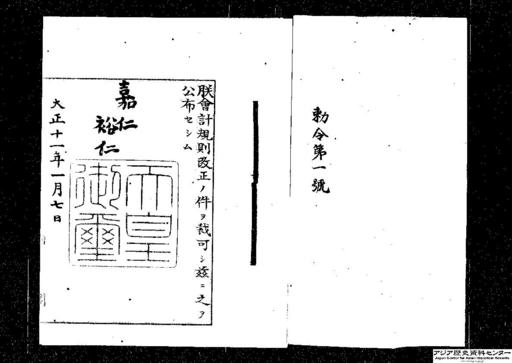 勅令第一號
朕會計規則改正ノ件ヲ裁可シ茲ニ之ヲ
公布セシム
嘉仁
裕仁
天皇
御璽
大正十一年一月七日
アジア歴史資料センター
Japan Center for Asian Historical Records